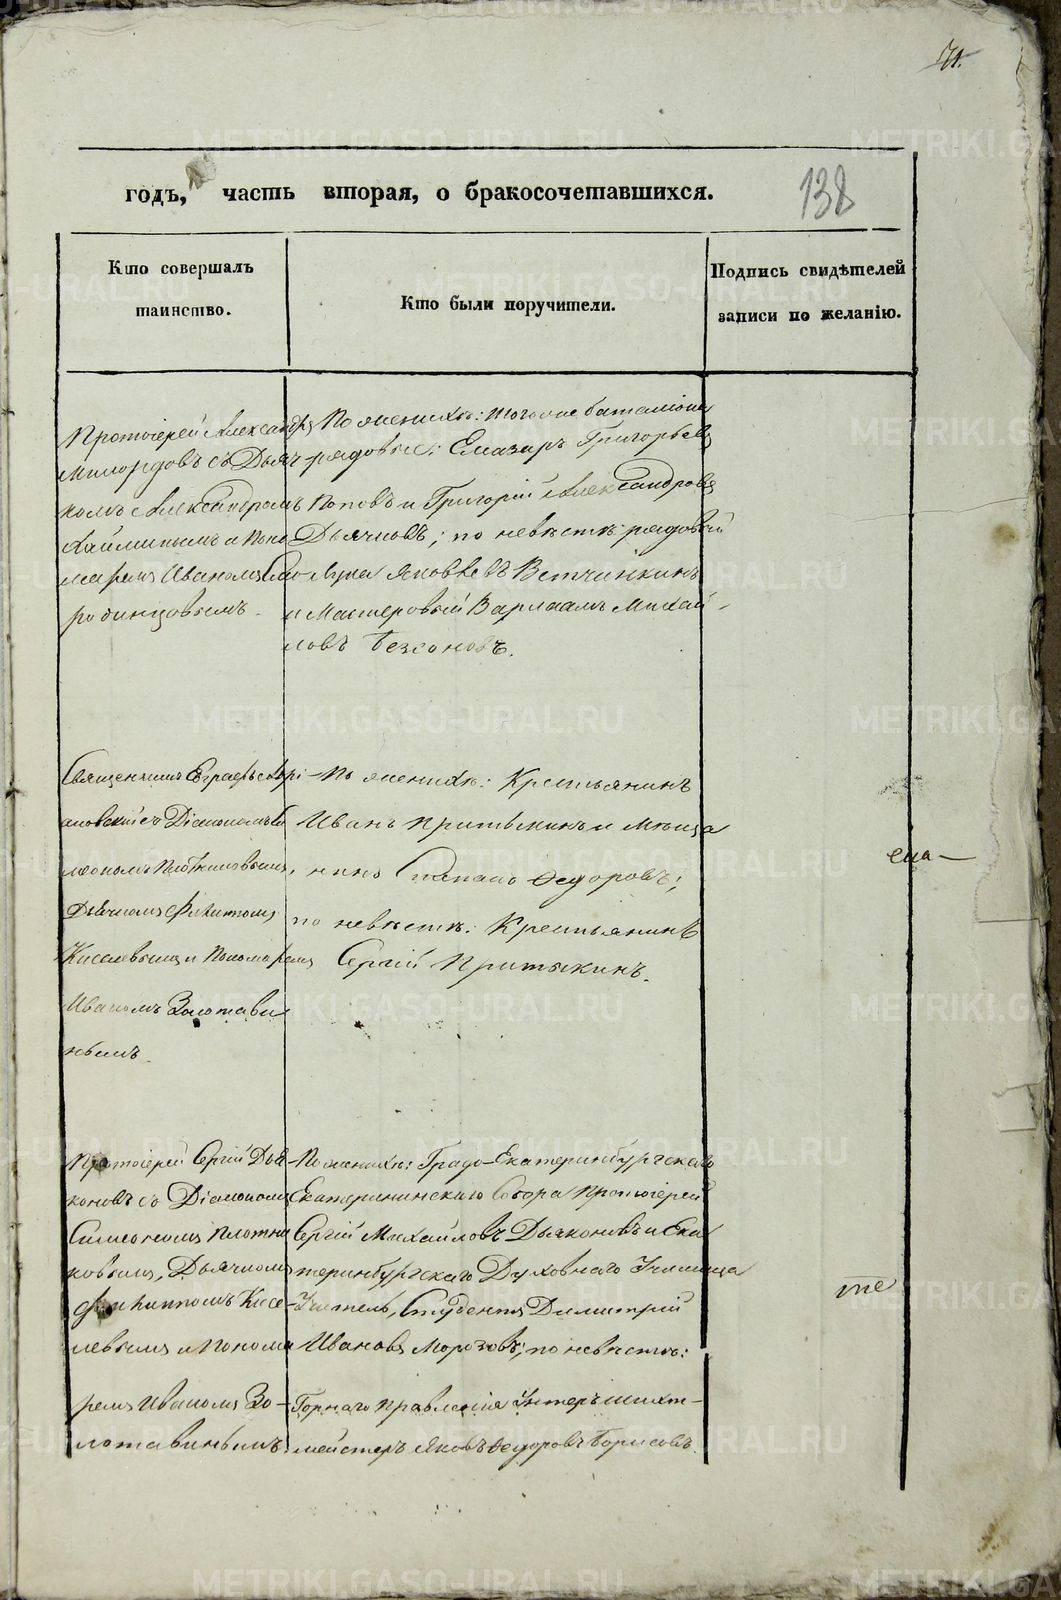 138
годъ, часть вторая, о бракосочетавшихся.
Кто совершалъ
таинство.
Кто были поручители.
Подпись свидѣтелей
записи по желанію.
Протоіерей Александръ
съ Дьяч-
комъ Александромъ
и Поно-
маремъ Иваномъ Сло-
родинцовымъ.
По женихѣ: того же баталіона
рядовые: Елазаръ Григорьевъ
Поповъ и Григорій Александровъ
Дьячковъ; по невѣстѣ: рядовый
Лука Яковлевъ Ветчинкинъ
и Мастеровый Варлаамъ Михай-
ловъ Безсоновъ.
Священникъ Евграфъ
съ Діакономъ Си-
меономъ Плотниковымъ,
Дьячкомъ Филиппомъ
Киселевымъ и Пономаремъ
Иваномъ Золотави-
нымъ.
По женихѣ: Крестьянинъ
Иванъ Притыкинъ и Мѣща-
нинъ Степанъ Ѳедоровъ;
по невѣстѣ: Крестьянинъ
Сергій Притыкинъ.
Протоіерей Сергій Дья-
коновъ съ Діакономъ
Симеономъ Плотни-
ковымъ, Дьячкомъ
Филиппомъ Кисе-
левымъ и Понома-
ремъ Иваномъ Зо-
лотавинымъ.
По женихѣ: Градо-Екатеринбургскаго
Екатерининскаго Собора Протоіерей
Сергій Михайловъ Дьяконовъ и Ека-
теринбургскаго Духовнаго Училища
Учитель, Студентъ Димитрій
Ивановъ Морозовъ; по невѣстѣ:
Горнаго Правленія Унтеръ шихт-
мейстеръ Яковъ Ѳедоровъ Борисовъ.
METRIKI.GASO-URAL.RU